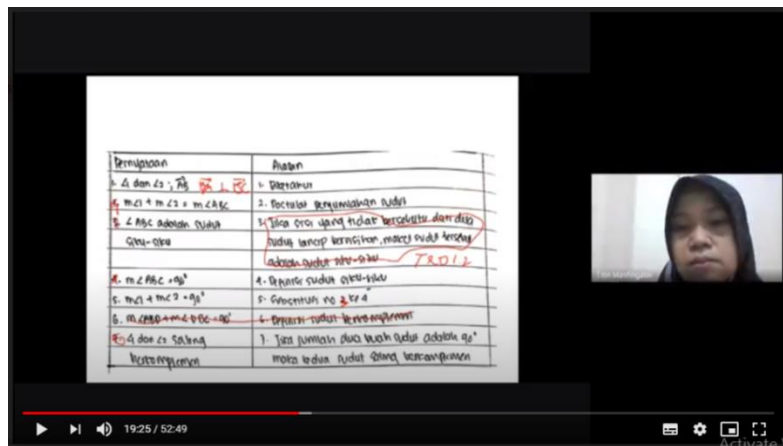 Pernyataan
Alasan
1. ∠1 dan ∠2 ; BA ⊥ BC
1. Diketahui
2. m∠1 + m∠2 = m∠ABC
2. Postulat Penjumlahan sudut
3. ∠ABC adalah sudut
siku-siku
3. Jika sisi yang tidak bersekutu dari dua
sudut lancip berhimpitan, maka sudut tersebut
adalah sudut siku-siku
4. m∠ABC = 90°
4. Definisi sudut siku-siku
5. m∠1 + m∠2 = 90°
5. Substitusi no 2 ke 4
6. m∠ABD + m∠DBC = 90°
6. Definisi sudut berkomplemen
∠1 dan ∠2 saling
berkomplemen
7. Jika jumlah dua buah sudut adalah 90°
maka kedua sudut saling berkomplemen
19:25 / 52:49
Activate